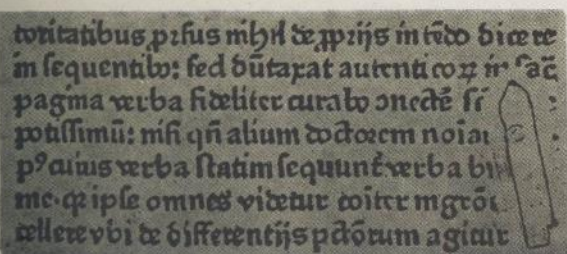 toritatibus prsus nihil de ꝓprijs in tēdo dicere
in sequentibꝰ: sed dūtaxat autenticoꝝ
pagina verba fideliter curabo ↄnectē
potissimū: nisi qñ alium doctorem
pꝰ cuius verba statim sequunt̄ verba
me. qꝛ ipse omnes videtur coiter
cellere vbi de differentijs pctōrum agitur